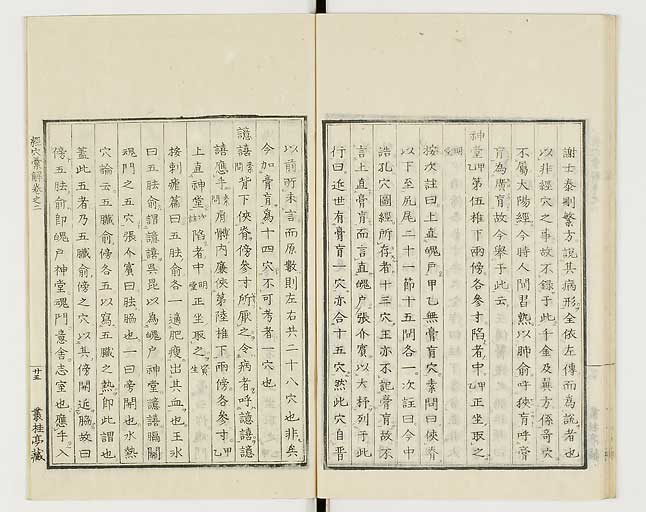 謝士泰刪繁方說其病形全依左傳而為說者也
以非經穴之事故不錄于此千金及翼方係奇穴
不屬太陽經今時人間習熟以肺俞呼狹肓呼膏
肓為廣肓故今舉于此云
神堂甲乙第五椎下兩傍各參寸陷者中甲乙正坐取之
按次註曰上直魄戶甲乙無膏肓穴素問曰俠脊
以下至尻尾二十一節十五間各一次註曰今中
誥孔穴圖經所存者十三穴王亦不記膏肓故不
言上直膏肓而言直魄戶張介賓以大杼列于此
行曰近世有膏肓一穴亦合十五穴然此穴自晉
以前所未言而原數則左右共二十八穴也非矣
今加膏肓為十四穴不可考者一穴也
譩譆素問背下俠脊傍參寸所厭之令病者呼譩譆譩
譆應手素問肩髆內廉俠第陸椎下兩傍各參寸甲乙
上直神堂次註陷者中明堂正坐取之資生
按刺瘧篇曰五胠俞各一適肥瘦出其血也王氷
曰五胠俞謂譩譆吳昆以為魄戶神堂譩譆膈關
魂門之五穴張介賓曰胠脇也一曰旁開也水熱
穴論云五臟俞傍各五以寫五臟之熱即此謂也
蓋此五者乃五臟俞傍之穴以其傍開近脇故曰
傍五胠俞即魄戶神堂魂門意舍志室也應手入
經穴彙解卷之二
廿五
叢桂亭藏